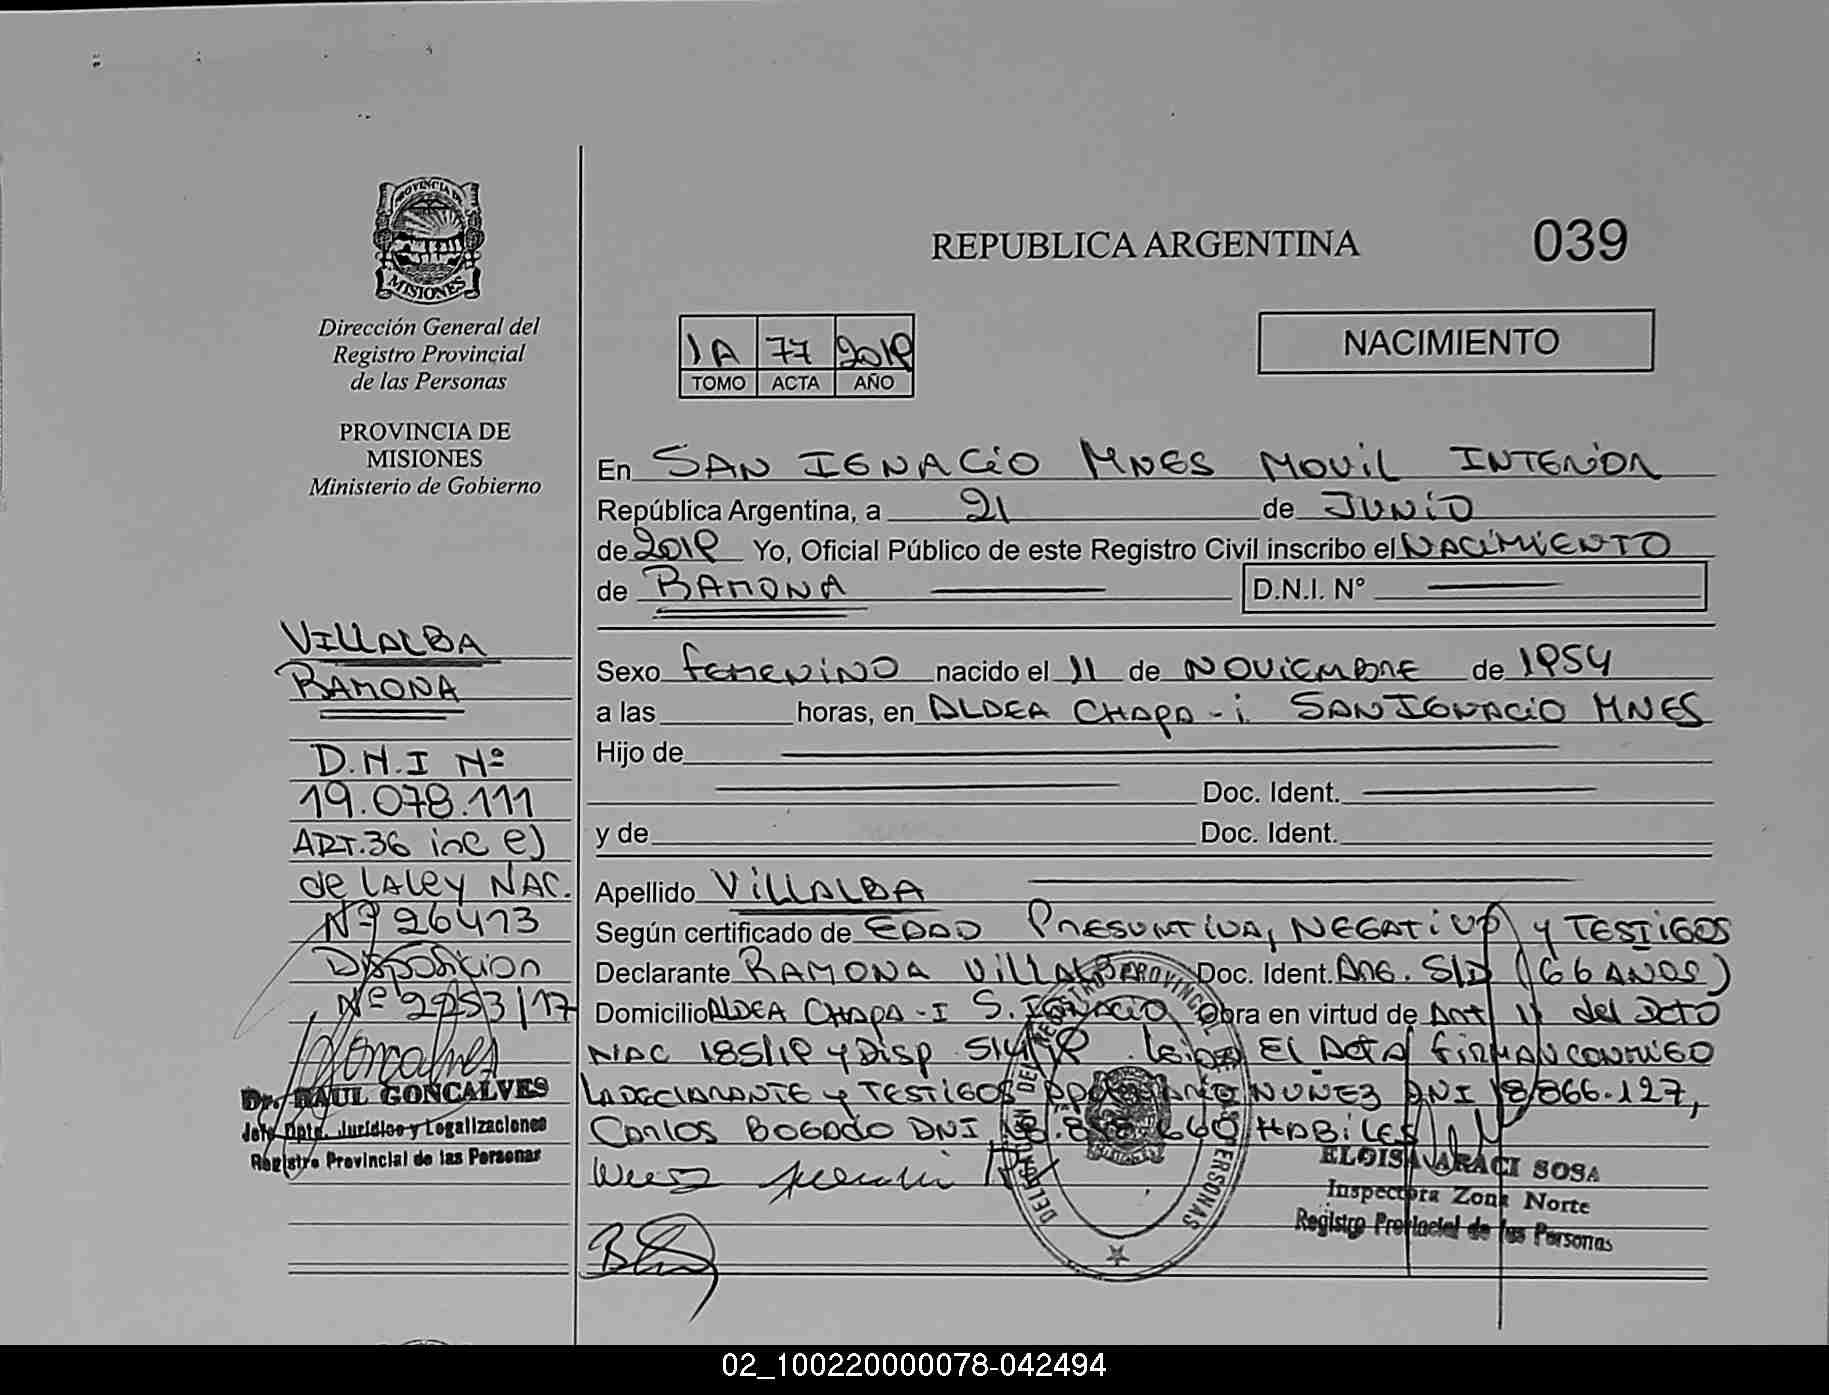 PROVINCIA DE
MISIONES
Dirección General del
Registro Provincial
de las Personas
PROVINCIA DE
MISIONES
Ministerio de Gobierno
VILLALBA
RAMONA
D.N.I Nº
19.078.111
ART.36 inc e)
de LA Ley NAC.
Nº 26413
Disposicion
Nº 2253/17
Goncalves
Dr. RAUL GONCALVES
Jefe Dpto. Jurídico y Legalizaciones
Registro Provincial de las Personas
REPUBLICA ARGENTINA
039
1A 77 2019
TOMO ACTA AÑO
NACIMIENTO
En SAN IGNACIO MNES MOVIL INTERIOR
República Argentina, a 21 de JUNIO
de 2019 Yo, Oficial Público de este Registro Civil inscribo el NACIMIENTO
de RAMONA D.N.I. N°
Sexo femenino nacido el 11 de NOVIEMBRE de 1954
a las horas, en ALDEA CHAPA-i SAN IGNACIO MNES
Hijo de
Doc. Ident.
y de Doc. Ident.
Apellido VILLALBA
Según certificado de EDAD PRESUNTIVA, NEGATIVO y TESTIGOS
Declarante RAMONA VILLALBA Doc. Ident. ARG. S/D (66 ANOS)
Domicilio ALDEA CHAPA-I S. IGNACIO Obra en virtud de Art 11 del DCTO
NAC 185/19 y Disp. 514/19. Leida El ACTA FIRMAN CONMIGO
LA DECLARANTE y TESTIGOS NUÑEZ DNI 18.866.127,
CARLOS BOGADO DNI HABILES
ELOISA ARACI SOSA
Inspectora Zona Norte
Registro Provincial de las Personas
02_100220000078-042494